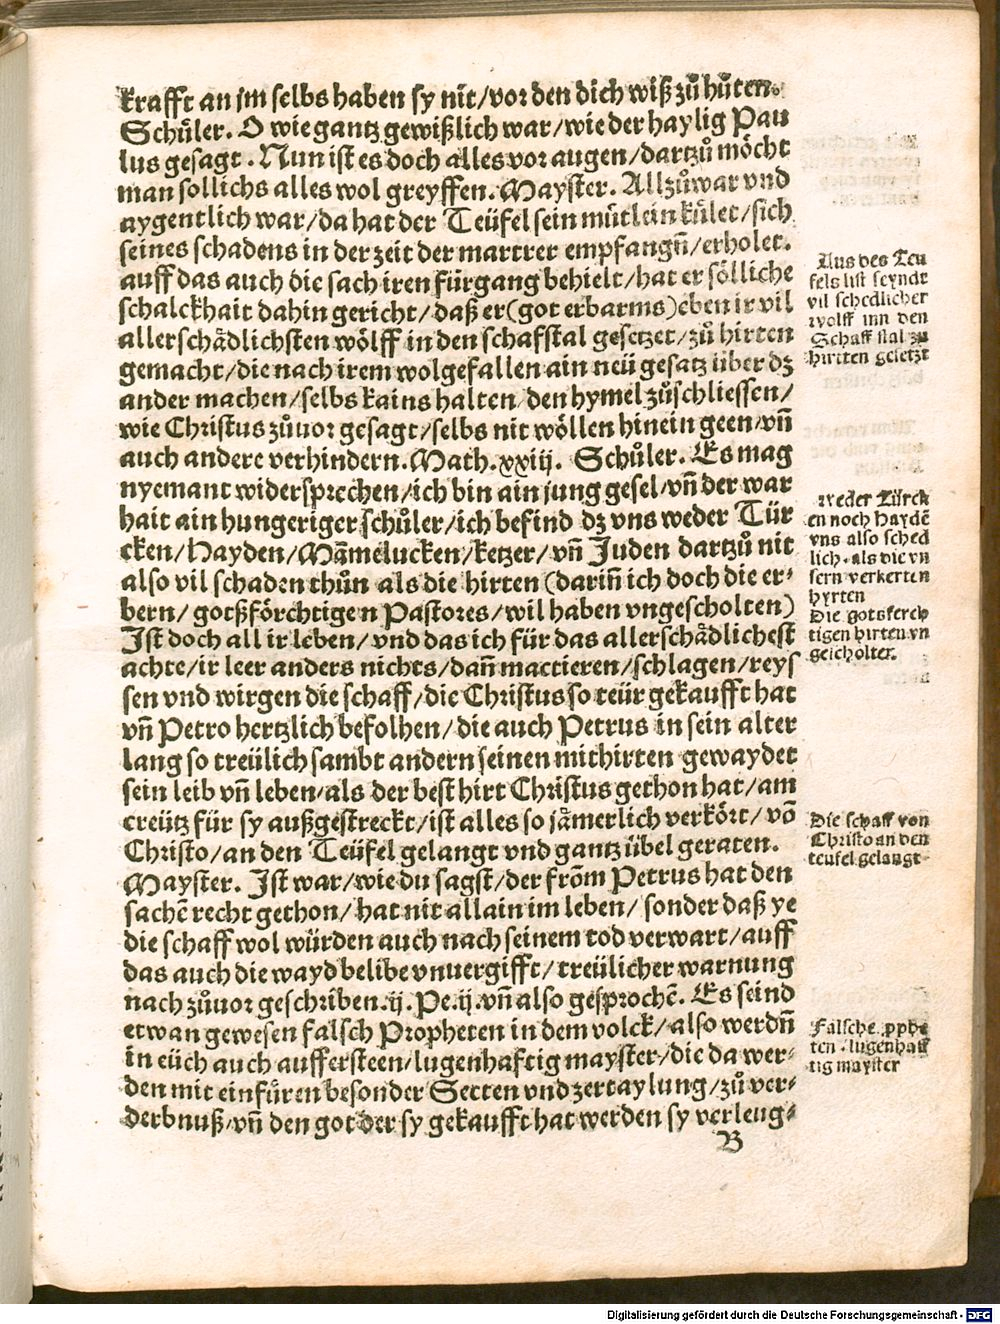 krafft an jm selbs haben sy nit/vor den dich wiß zů hůten.
Schůler. O wie gantz gewißlich war/wie der haylig Pau
lus gesagt. Nun ist es doch alles vor augen/dartzů möcht
man sollichs alles wol greyffen. Mayster. Allzůwar vnd
aygentlich war/da hat der Teüfel sein můtlein kület/sich
seines schadens in der zeit der martrer empfangñ/erholet.
auff das auch die sach iren fürgang behielt/hat er sölliche
schalckhait dahin gericht/daß er(got erbarms)eben ir vil
allerschådlichsten wölff in den schafstal gesetzet/zů hirten
gemacht/die nach irem wolgefallen ain neü gesatz über dz
ander machen/selbs kains halten/den hymel zůschliessen/
wie Christus zůuor gesagt/selbs nit wöllen hinein geen/vñ
auch andere verhindern. Math. xxiij. Schůler. Es mag
nyemant widersprechen/ich bin ain jung gesel/vñ der war
hait ain hungeriger schůler/ich befind dz vns weder Tür
cken/Hayden/Mãmelucken/ketzer/vñ Juden dartzů nit
also vil schaden thůn als die hirten (dariñ ich doch die er-
bern/gotßförchtigen Pastores/wil haben vngescholten)
Ist doch all ir leben/vnd das ich für das allerschådlichest
achte/ir leer anders nichts/dañ mactieren/schlagen/reys
sen vnd wirgen die schaff/die Christus so teür gekaufft hat
vñ Petro hertzlich befolhen/die auch Petrus in sein alter
lang so treülich sambt andern seinen mithirten gewaydet
sein leib vñ leben/als der best hirt Christus gethon hat/am
creütz für sy außgestreckt/ist alles so jåmerlich verkört/võ
Christo/an den Teüfel gelangt vnd gantz übel geraten.
Mayster. Ist war/wie du sagst/der from Petrus hat den
sachẽ recht gethon/hat nit allain im leben/sonder daß ye
die schaff wol würden auch nach seinem tod verwart/auff
das auch die wayd belibe vnuergifft/treülicher warnung
nach zůuor geschriben. ij. Pe. ij. vñ also gesprochẽ. Es seind
etwan gewesen falsch Propheten in dem volck/also werdñ
in eüch auch auffersteen/lugenhafftig mayster/die da wer-
den mit einfüren besonder Secten vnd zertaylung/zů ver-
derbnuß/vñ den got der sy gekaufft hat werden sy verleug-
B
Aus des Teu
fels list seyndt
vil schedlicher
wolff inn den
Schaff stal zu
hirtten gesetzt
Weder Türck
en noch Haydẽ
vns also sched
lich. als die vn
sern verkerten
hyrten
Die gotsferch
tigen hirten vn
gescholten.
Die schaff von
Christo an den
teufel gelangt
Falsche pphe
ten. lugenhaff
tig mayster
Digitalisierung gefördert durch die Deutsche Forschungsgemeinschaft - DFG